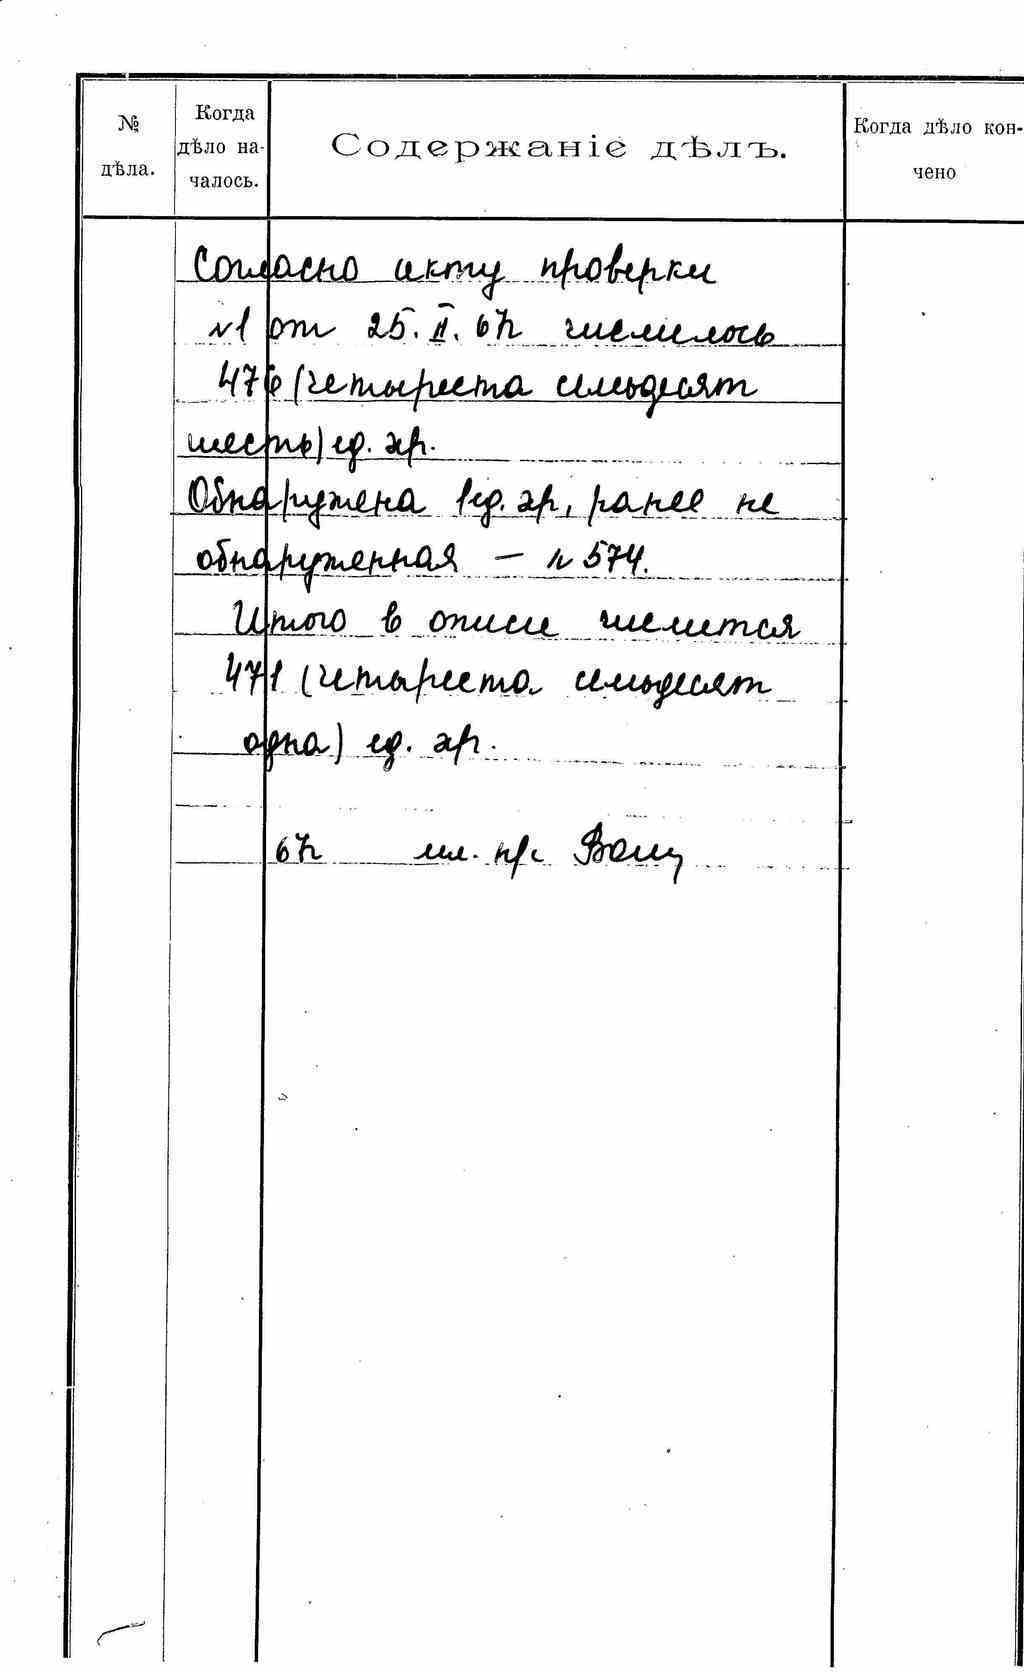 № дѣла.
Когда дѣло на-
чалось.
Содержаніе дѣлъ.
Когда дѣло кон-
чено
Согласно акту проверки
№1 от 25.II.67г числилось
476 (четыреста семьдесят
шесть) ед. хр.
Обнаружена 1 ед. хр, ранее не
обнаруженная — № 574.
Итого в описи числится
471 (четыреста семьдесят
одна) ед. хр.
67г мл. н/с